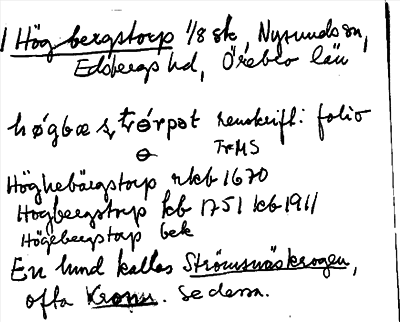 1 Högbergstorp 1/8 sk, Nysunds sn,
Edsbergs hd, Örebro län
høgbæ ș tørpøt renskrift: folio
ɵ FrMS
Höghebärgstorp rkb 1670
Högbergstorp kb 1751 kb 1911
Högebergstorp bek
En lund kallas Strömsnäskrogen,
ofta Kronu. Se dessa.